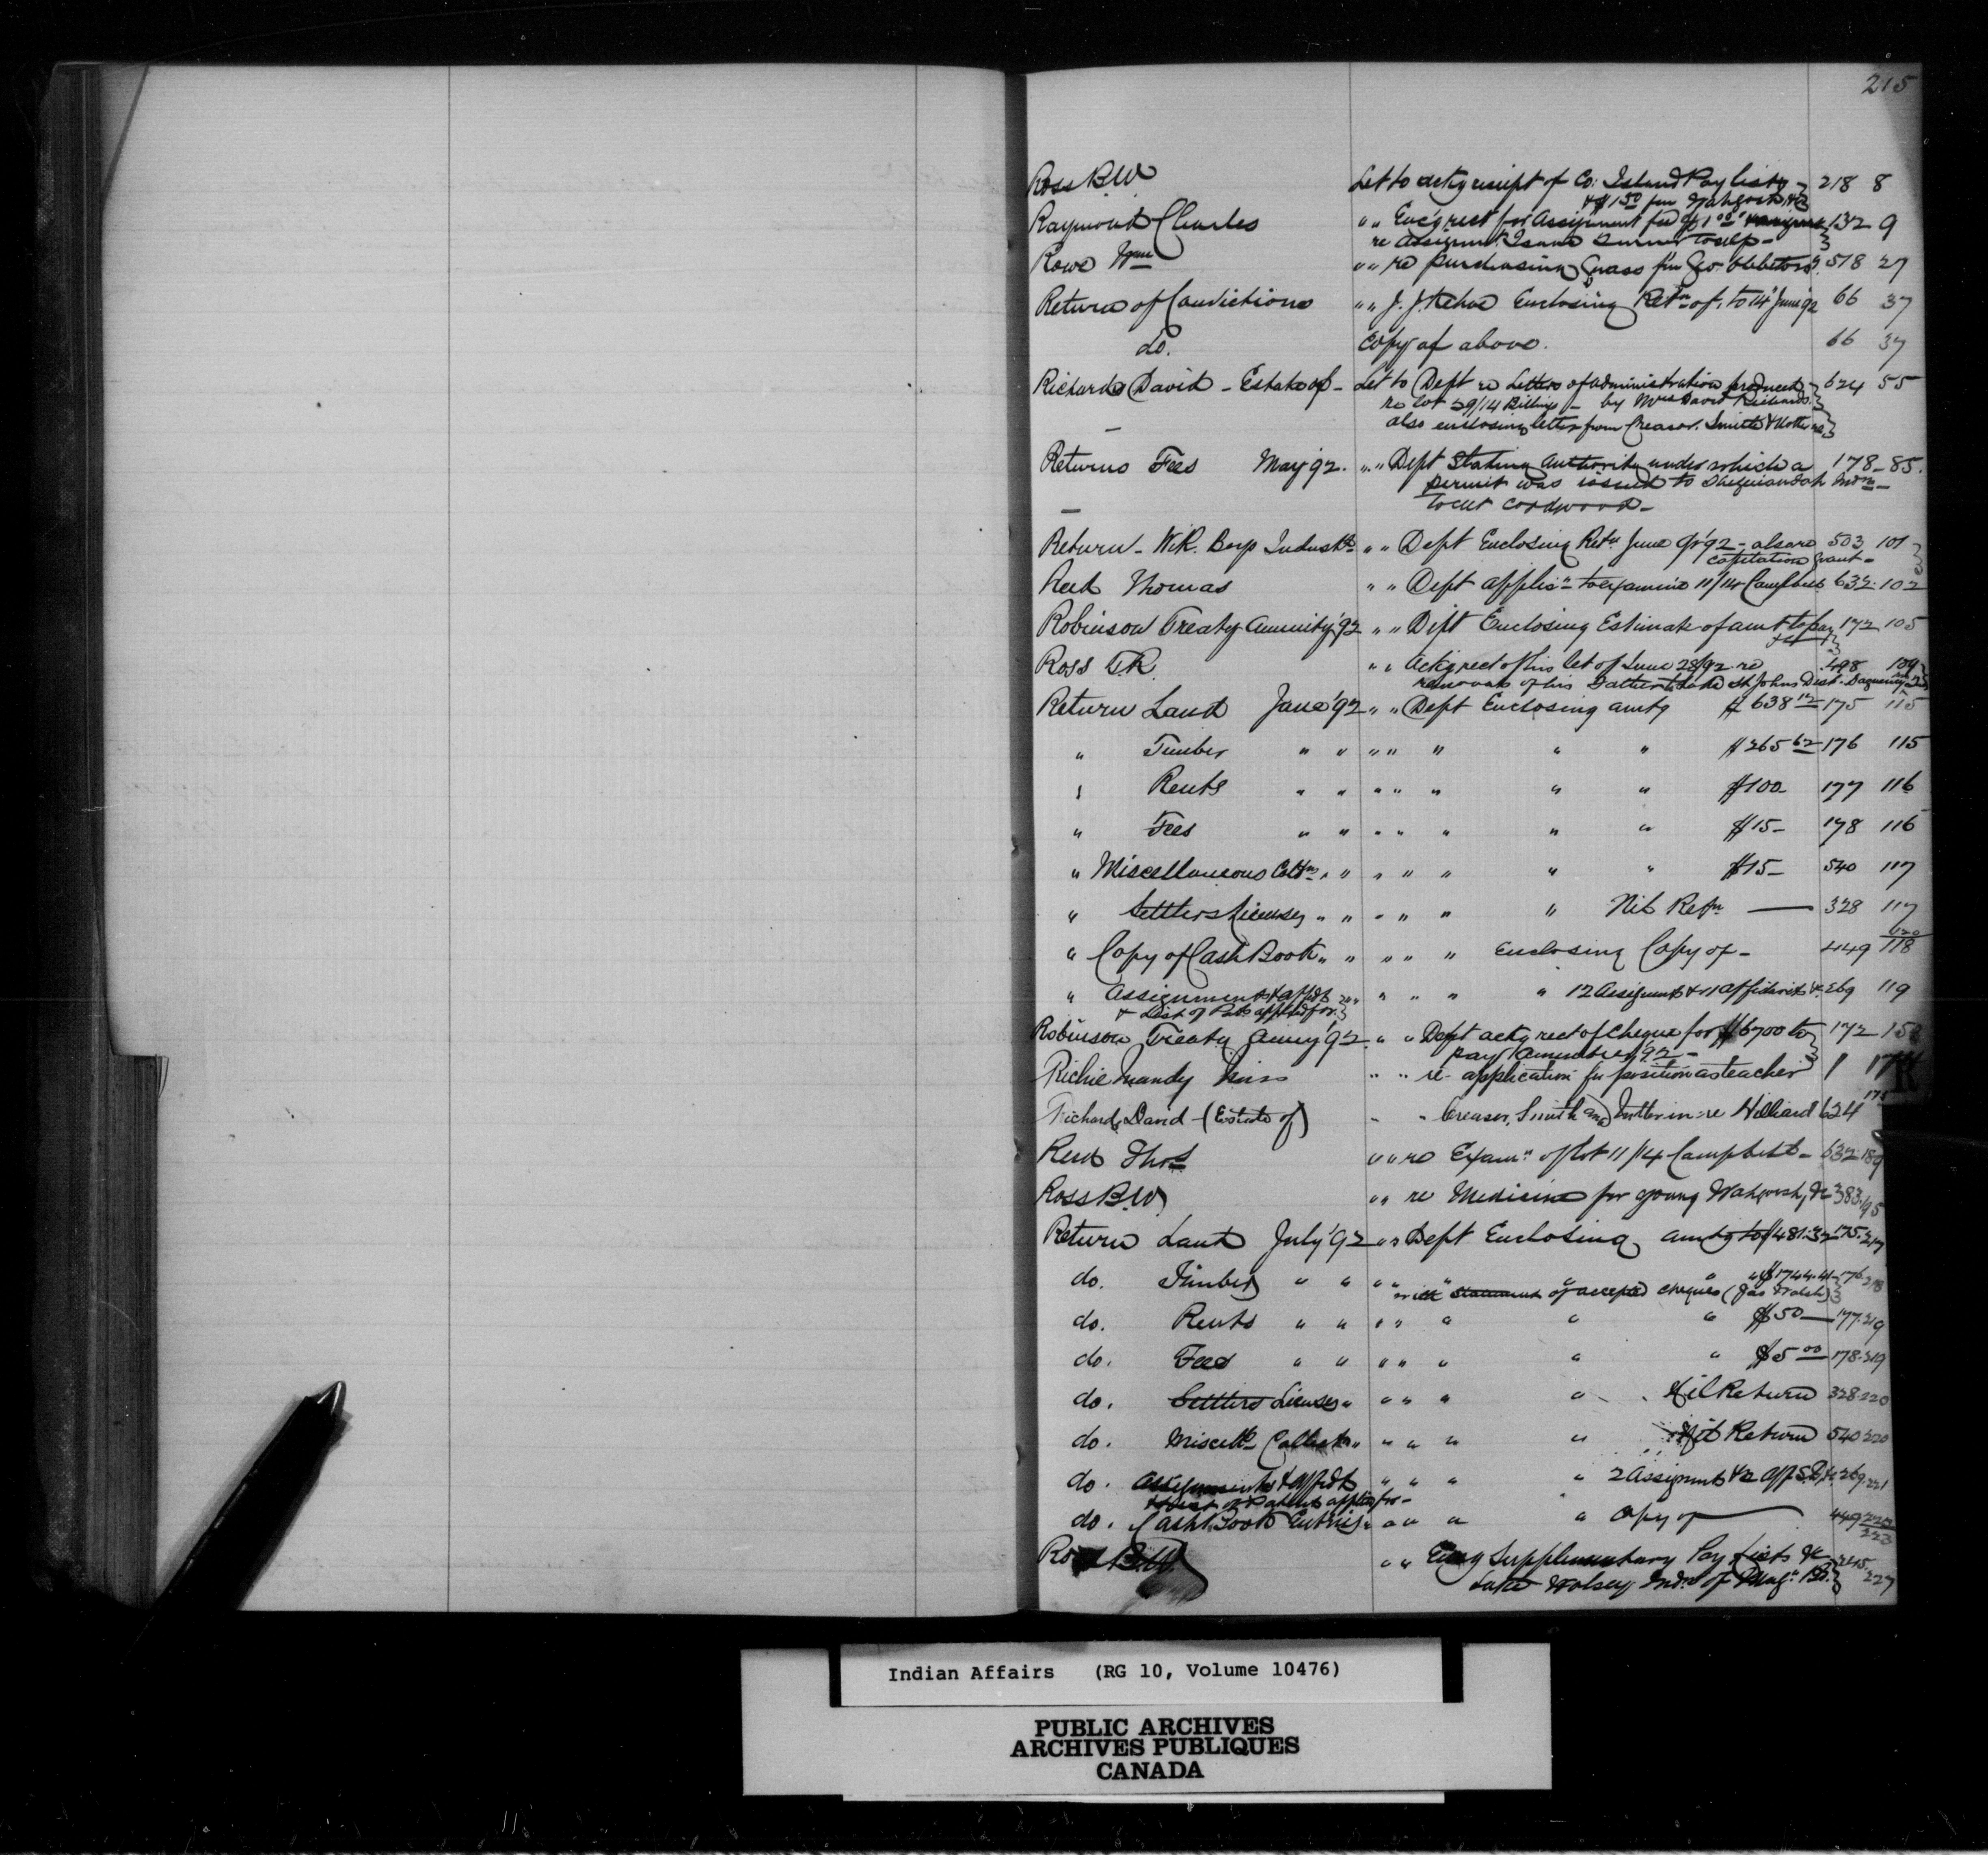 215
Ross B.W. Let to ackg receipt of Co: Island Pay lists 218 8
& $1.50 fm Wahgosh &c
Raymond Charles " " Enc'g rect for Assignment fee of $1.00 132 9
re Assignmt. Isaac Turner to self -
Rowe Wm " " re purchasing Grass fm Geo. 518 27
Return of Convictions " " J. J. Kehoe Enclosing Retn of, to 14 June 92 66 37
do. Copy of above. 66 37
Richards David - Estate of - Let to Dept re Letters of administration produced 624 55
re lot 29/14 Billings - by Mrs David Richards.
also enclosing letter from Creasor, Smith & Notter re
Returns Fees May '92. " " Dept Stating authority under which a 178 - 85.
permit was issued to Sheguiandah Indn -
to cut cordwood -
Return - Wik. Boys Industl " " Dept Enclosing Retn June Qr '92 - also re 503 101
capitation grant -
Reed Thomas " " Dept applicn to examine 11/14 Campbell 632 - 102
Robinson Treaty Annuity '92 " " Dept Enclosing Estimate of amt to pay 172 105
Ross T.R. " " Ackg rect of his let of June 28/92 re 498 109
removal of his Father to Lake St Johns Dist.
Return Land June '92 " " Dept Enclosing amtg $638 12 175 115
" Timber " " " " " " " $265 62 176 115
" Rents " " " " " " " $100 - 177 116
" Fees " " " " " " " $15 - 178 116
" Miscellaneous Coltns " " " " " " " $15 - 540 117
" Settlers Licenses " " " " " " Nil Retn — 328 117
" Copy of Cash Book " " " " " Enclosing Copy of - 449 118
120
" Assignments & affdts " " " " " " 12 Assignmts & 11 affidavits &c 269 119
& List of Pats. applied for
Robinson Treaty Anny '92 " " Dept ackg rect of cheque for $6700 to 172 158
pay Annuities 92 -
Richie Mandy Miss " " re application for position as teacher 1
Richards David - (Estate of) " " Creasor, Smith and Notter in re Hilliard 624 175
Reed Thos " " re Examn of lot 11/14 Campbell - 632 189
Ross B.W. " " re Medicine for young Wahgosh, &c 383 195
Return Land July '92 " " Dept Enclosing amtg to $481.32 175 - 217
do. Timber " " " " " " " " $1744.41 176 218
with statement of accepted cheques (Jas Walsh)
do. Rents " " " " " " " $50 — 177 219
do. Fees " " " " " " " $5 00 178 - 219
do. Settlers Licenses " " " " " Nil Return 328 220
do. Miscells Collectns " " " " " Nil Return 540 220
do. Assignments & affidts " " " " 2 Assignmt & 2 affdt &c 269 221
& List of Patents applied for -
do. Cash Book Entries " " " " " Copy of — 449 222
223
Ross B.W. " " Encg Supplementary Pay Lists &c 245
Lake Wolsey Inds of Mag. 227
R
Indian Affairs (RG 10, Volume 10476)
PUBLIC ARCHIVES
ARCHIVES PUBLIQUES
CANADA